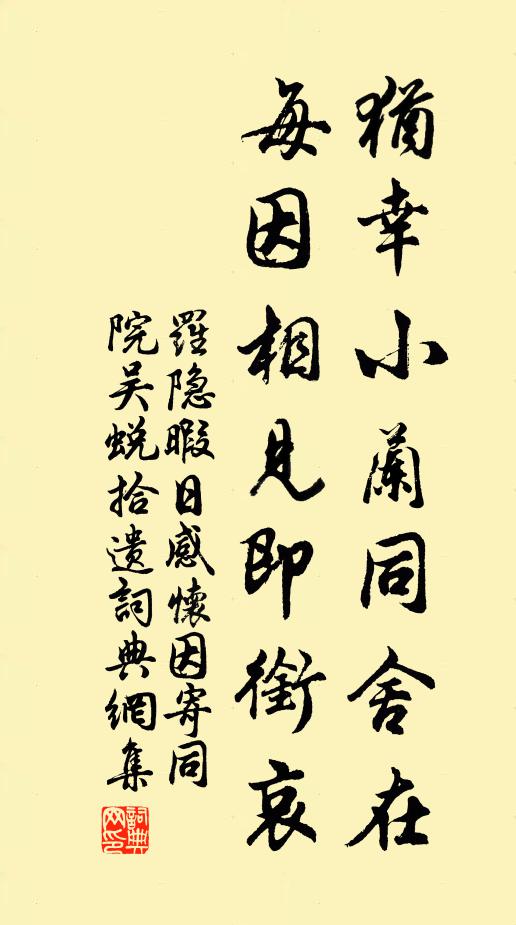 猶幸小蘭同舍在
每因相見即銜哀
羅隐暇日感懷因寄同
院吴蜕拾遺詞典網集
詞典
网印